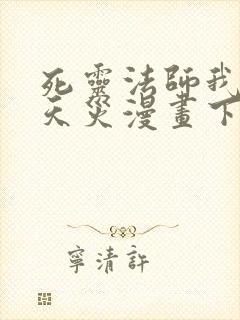 死靈法師我
天災漫畫下
寧清許